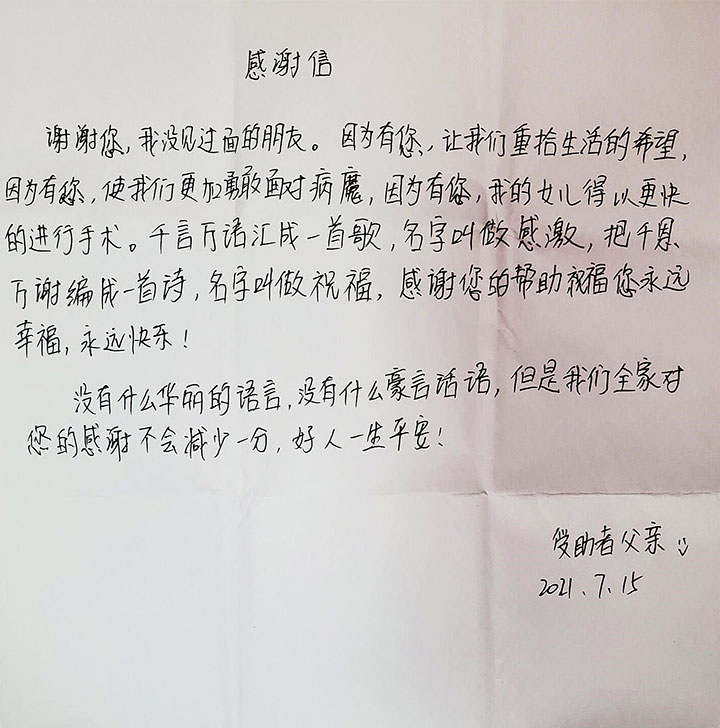 感谢信
谢谢您,我没见过面的朋友。因为有您,让我们重拾生活的希望,
因为有您,使我们更加勇敢面对病魔,因为有您,我的女儿得以更快
的进行手术。千言万语汇成一首歌,名字叫做感激,把千恩
万谢编成一首诗,名字叫做祝福,感谢您的帮助祝福您永远
幸福,永远快乐!
没有什么华丽的语言,没有什么豪言话语,但是我们全家对
您的感谢不会减少一分,好人一生平安!
受助者父亲
2021.7.15